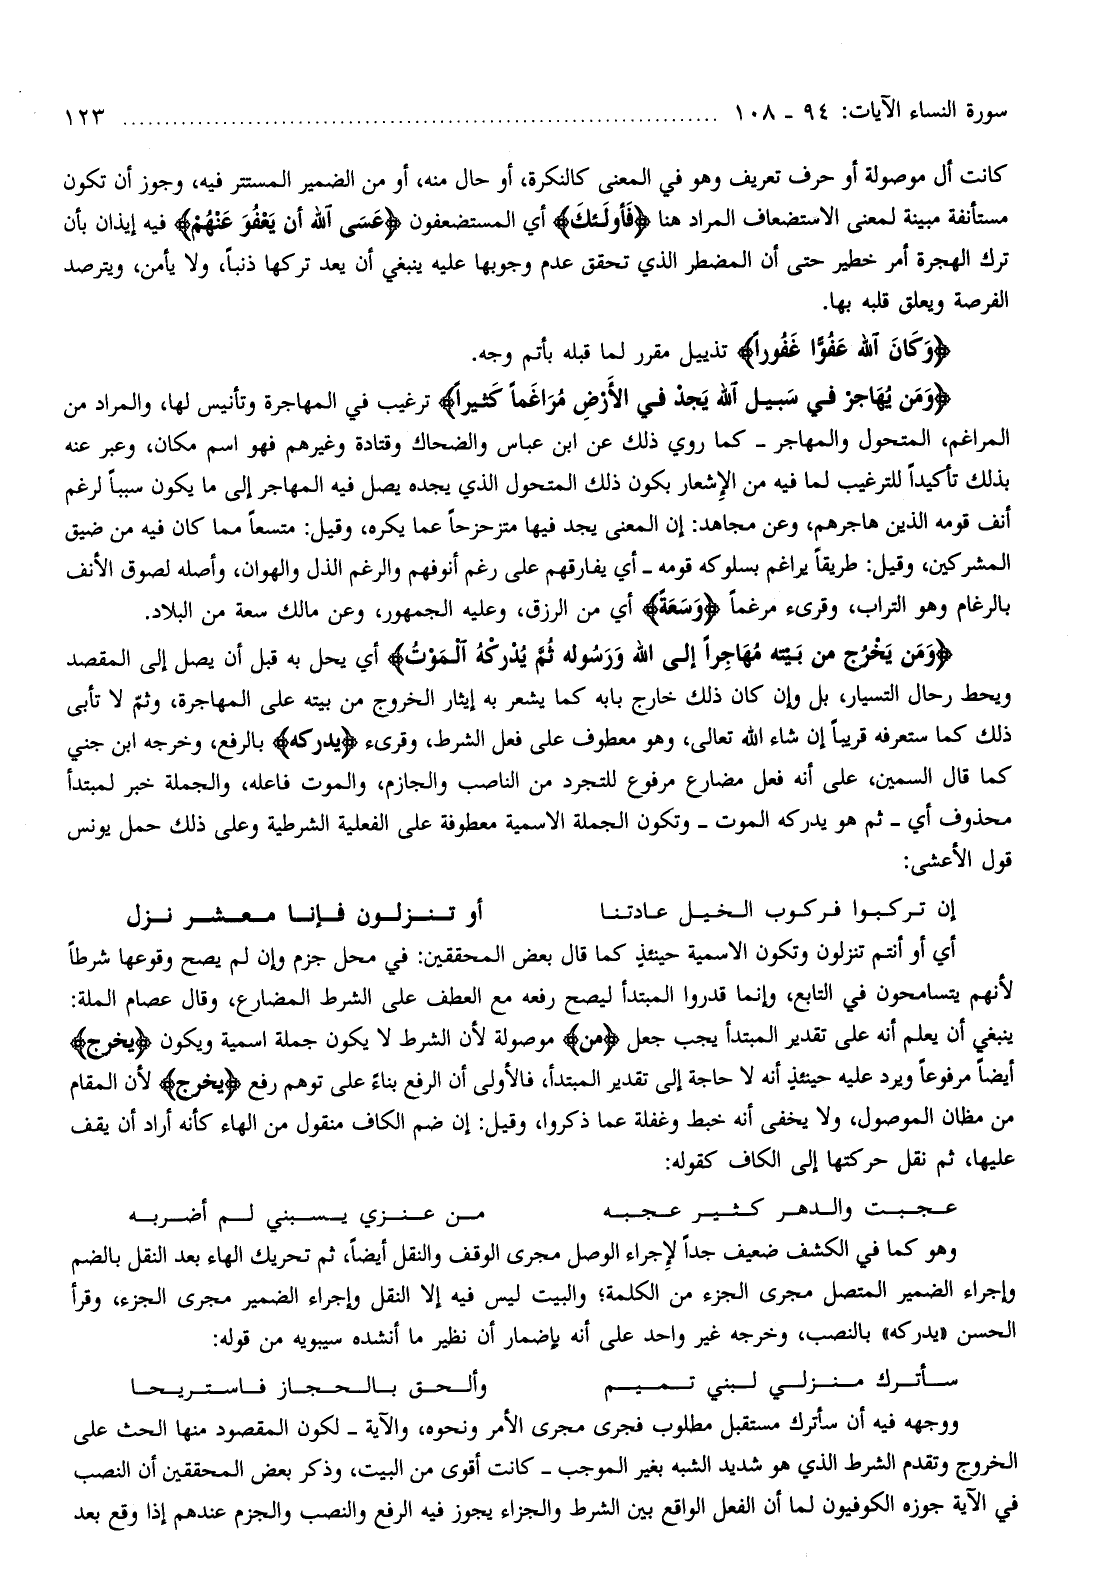 سورة النساء الآيات: ٩٤ ـ ١٠٨ ........................................................................ ١٢٣
كانت أل موصولة أو حرف تعريف وهو في المعنى كالنكرة، أو حال منه، أو من الضمير المستتر فيه، وجوز أن تكون
مستأنفة مبينة لمعنى الاستضعاف المراد هنا ﴿فَأُولَئكَ﴾ أي المستضعفون ﴿عَسَى ٱلله أن يَعْفُوَ عَنْهُمْ﴾ فيه إيذان بأن
ترك الهجرة أمر خطير حتى أن المضطر الذي تحقق عدم وجوبها عليه ينبغي أن يعد تركها ذنباً، ولا يأمن، ويترصد
الفرصة ويعلق قلبه بها.
﴿وَكَانَ ٱلله عَفُوًّا غَفُوراً﴾ تذييل مقرر لما قبله بأتم وجه.
﴿وَمَن يُهَاجرْ في سَبيل ٱلله يَجدْ في الأَرْضِ مُرَاغَماً كَثيراً﴾ ترغيب في المهاجرة وتأنيس لها، والمراد من
المراغم، المتحول والمهاجر ـ كما روي ذلك عن ابن عباس والضحاك وقتادة وغيرهم فهو اسم مكان، وعبر عنه
بذلك تأكيداً للترغيب لما فيه من الإشعار بكون ذلك المتحول الذي يجده يصل فيه المهاجر إلى ما يكون سبباً لرغم
أنف قومه الذين هاجرهم، وعن مجاهد: إن المعنى يجد فيها متزحزحاً عما يكره، وقيل: متسعاً مما كان فيه من ضيق
المشركين، وقيل: طريقاً يراغم بسلوكه قومه ـ أي يفارقهم على رغم أنوفهم والرغم الذل والهوان، وأصله لصوق الأنف
بالرغام وهو التراب، وقرىء مرغماً ﴿وَسَعَةً﴾ أي من الرزق، وعليه الجمهور، وعن مالك سعة من البلاد.
﴿وَمَن يَخْرُج من بَيْته مُهَاجراً إلى الله وَرَسُوله ثُمَّ يُدْركْهُ ٱلْمَوْتُ﴾ أي يحل به قبل أن يصل إلى المقصد
ويحط رحال التسيار، بل وإن كان ذلك خارج بابه كما يشعر به إيثار الخروج من بيته على المهاجرة، وثمّ لا تأبى
ذلك كما ستعرفه قريباً إن شاء الله تعالى، وهو معطوف على فعل الشرط، وقرىء ﴿يدركه﴾ بالرفع، وخرجه ابن جني
كما قال السمين، على أنه فعل مضارع مرفوع للتجرد من الناصب والجازم، والموت فاعله، والجملة خبر لمبتدأ
محذوف أي ـ ثم هو يدركه الموت ـ وتكون الجملة الاسمية معطوفة على الفعلية الشرطية وعلى ذلك حمل يونس
قول الأعشى:
إن تركبوا فركوب الخيل عادتنا أو تنزلون فإنا معشر نزل
أي أو أنتم تنزلون وتكون الاسمية حينئذٍ كما قال بعض المحققين: في محل جزم وإن لم يصح وقوعها شرطاً
لأنهم يتسامحون في التابع، وإنما قدروا المبتدأ ليصح رفعه مع العطف على الشرط المضارع، وقال عصام الملة:
ينبغي أن يعلم أنه على تقدير المبتدأ يجب جعل ﴿من﴾ موصولة لأن الشرط لا يكون جملة اسمية ويكون ﴿يخرج﴾
أيضاً مرفوعاً ويرد عليه حينئذٍ أنه لا حاجة إلى تقدير المبتدأ، فالأولى أن الرفع بناءً على توهم رفع ﴿يخرج﴾ لأن المقام
من مظان الموصول، ولا يخفى أنه خبط وغفلة عما ذكروا، وقيل: إن ضم الكاف منقول من الهاء كأنه أراد أن يقف
عليها، ثم نقل حركتها إلى الكاف كقوله:
عجبت والدهر كثير عجبه من عنزي يسبني لم أضربه
وهو كما في الكشف ضعيف جداً لإجراء الوصل مجرى الوقف والنقل أيضاً، ثم تحريك الهاء بعد النقل بالضم
وإجراء الضمير المتصل مجرى الجزء من الكلمة؛ والبيت ليس فيه إلا النقل وإجراء الضمير مجرى الجزء، وقرأ
الحسن «يدركه» بالنصب، وخرجه غير واحد على أنه بإضمار أن نظير ما أنشده سيبويه من قوله:
سأترك منزلي لبني تميم وألحق بالحجاز فاستريحا
ووجهه فيه أن سأترك مستقبل مطلوب فجرى مجرى الأمر ونحوه، والآية ـ لكون المقصود منها الحث على
الخروج وتقدم الشرط الذي هو شديد الشبه بغير الموجب ـ كانت أقوى من البيت، وذكر بعض المحققين أن النصب
في الآية جوزه الكوفيون لما أن الفعل الواقع بين الشرط والجزاء يجوز فيه الرفع والنصب والجزم عندهم إذا وقع بعد